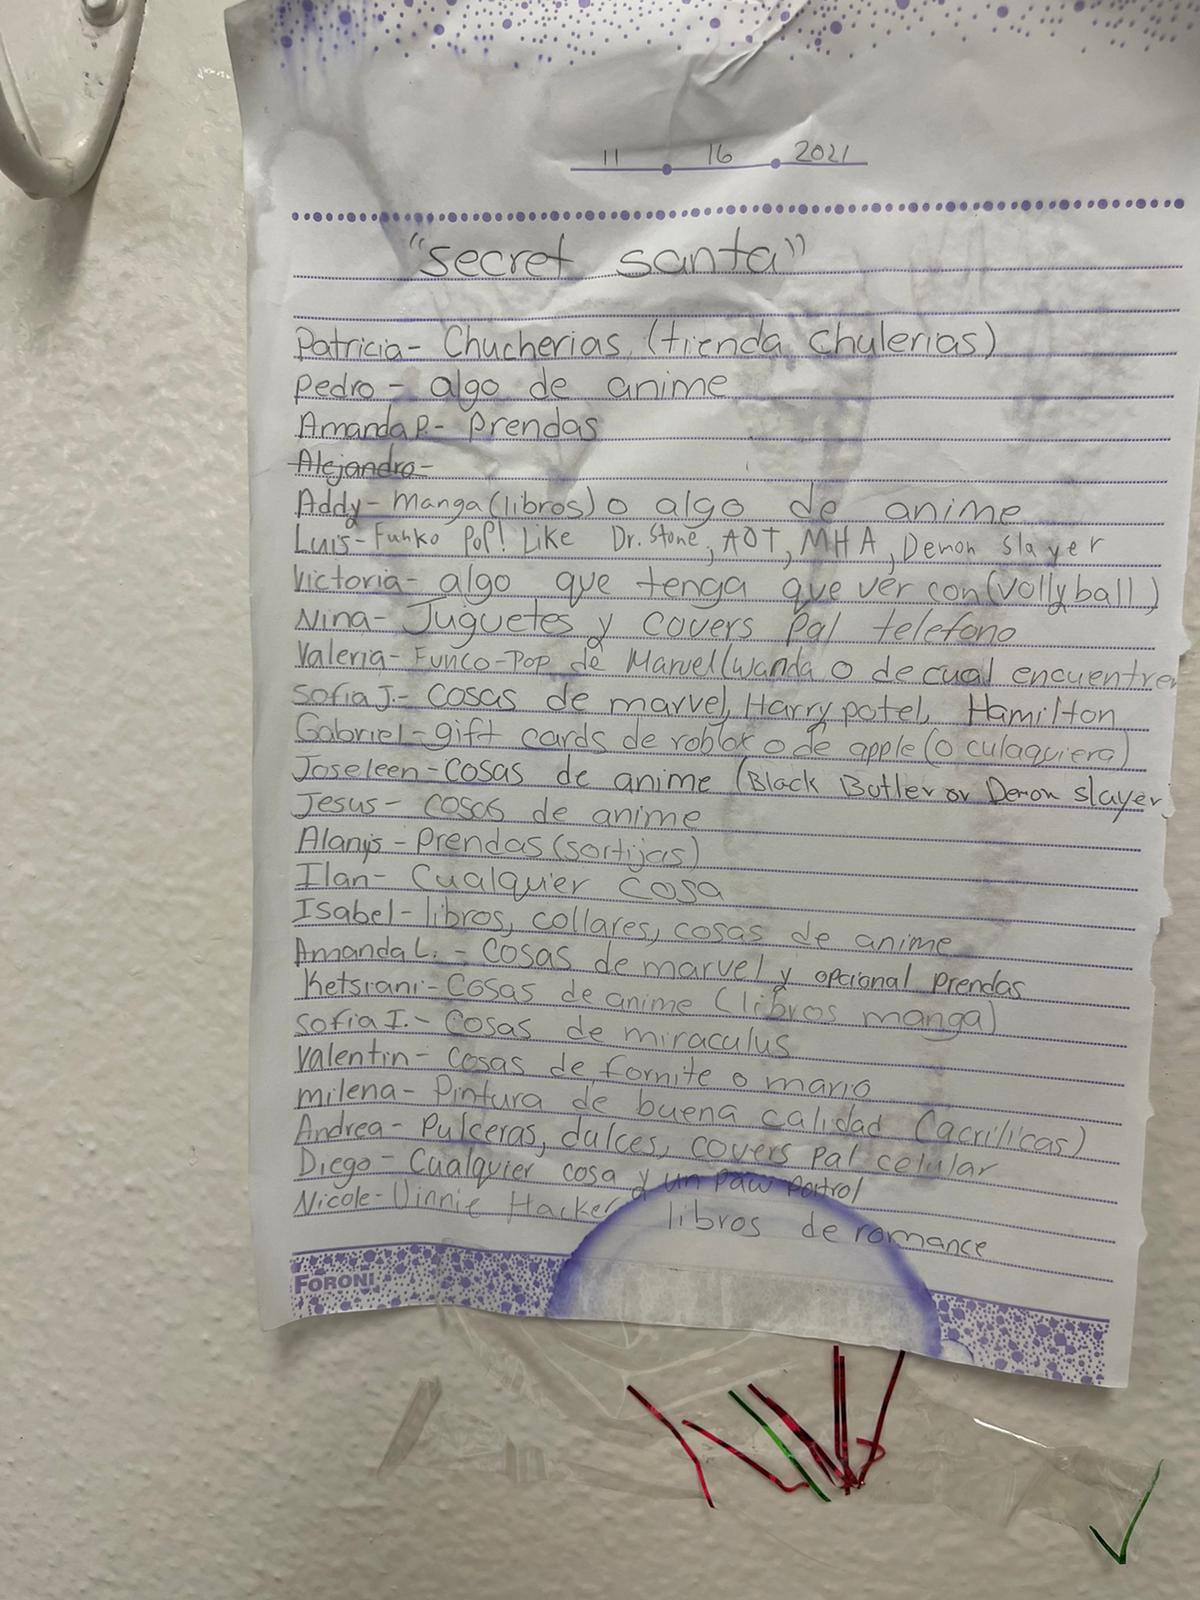 11 16 2021
"secret santa"
Patricia- Chucherias (tienda chulerias)
Pedro - algo de anime
Amanda P.- Prendas
Alejandro-
Addy- manga (libros) o algo de anime
Luis- Funko Pop! Like Dr. Stone, AOT, MHA, Demon Slayer
Victoria- algo que tenga que ver con (vollyball)
Nina- Juguetes y covers pal telefono
Valeria- Funco-Pop de Marvel (wanda o de cual encuentren
Sofia J.- cosas de marvel, Harry potel, Hamilton
Gabriel- gift cards de roblox o de apple (o culaquiera)
Joseleen- cosas de anime (Black Butler or Demon slayer
Jesus- cosas de anime
Alanys - Prendas (sortijas)
Ilan- Cualquier cosa
Isabel- libros, collares, cosas de anime
Amanda L. - cosas de marvel y opcional prendas
Ketsiani- Cosas de anime (libros manga)
Sofia I.- Cosas de miraculus
Valentin- cosas de fornite o mario
milena- Pintura de buena calidad (acrilicas)
Andrea- Pulceras, dulces, covers pal celular
Diego- Cualquier cosa y un paw portrol
Nicole- Vinnie Hacker libros de romance
FORONI